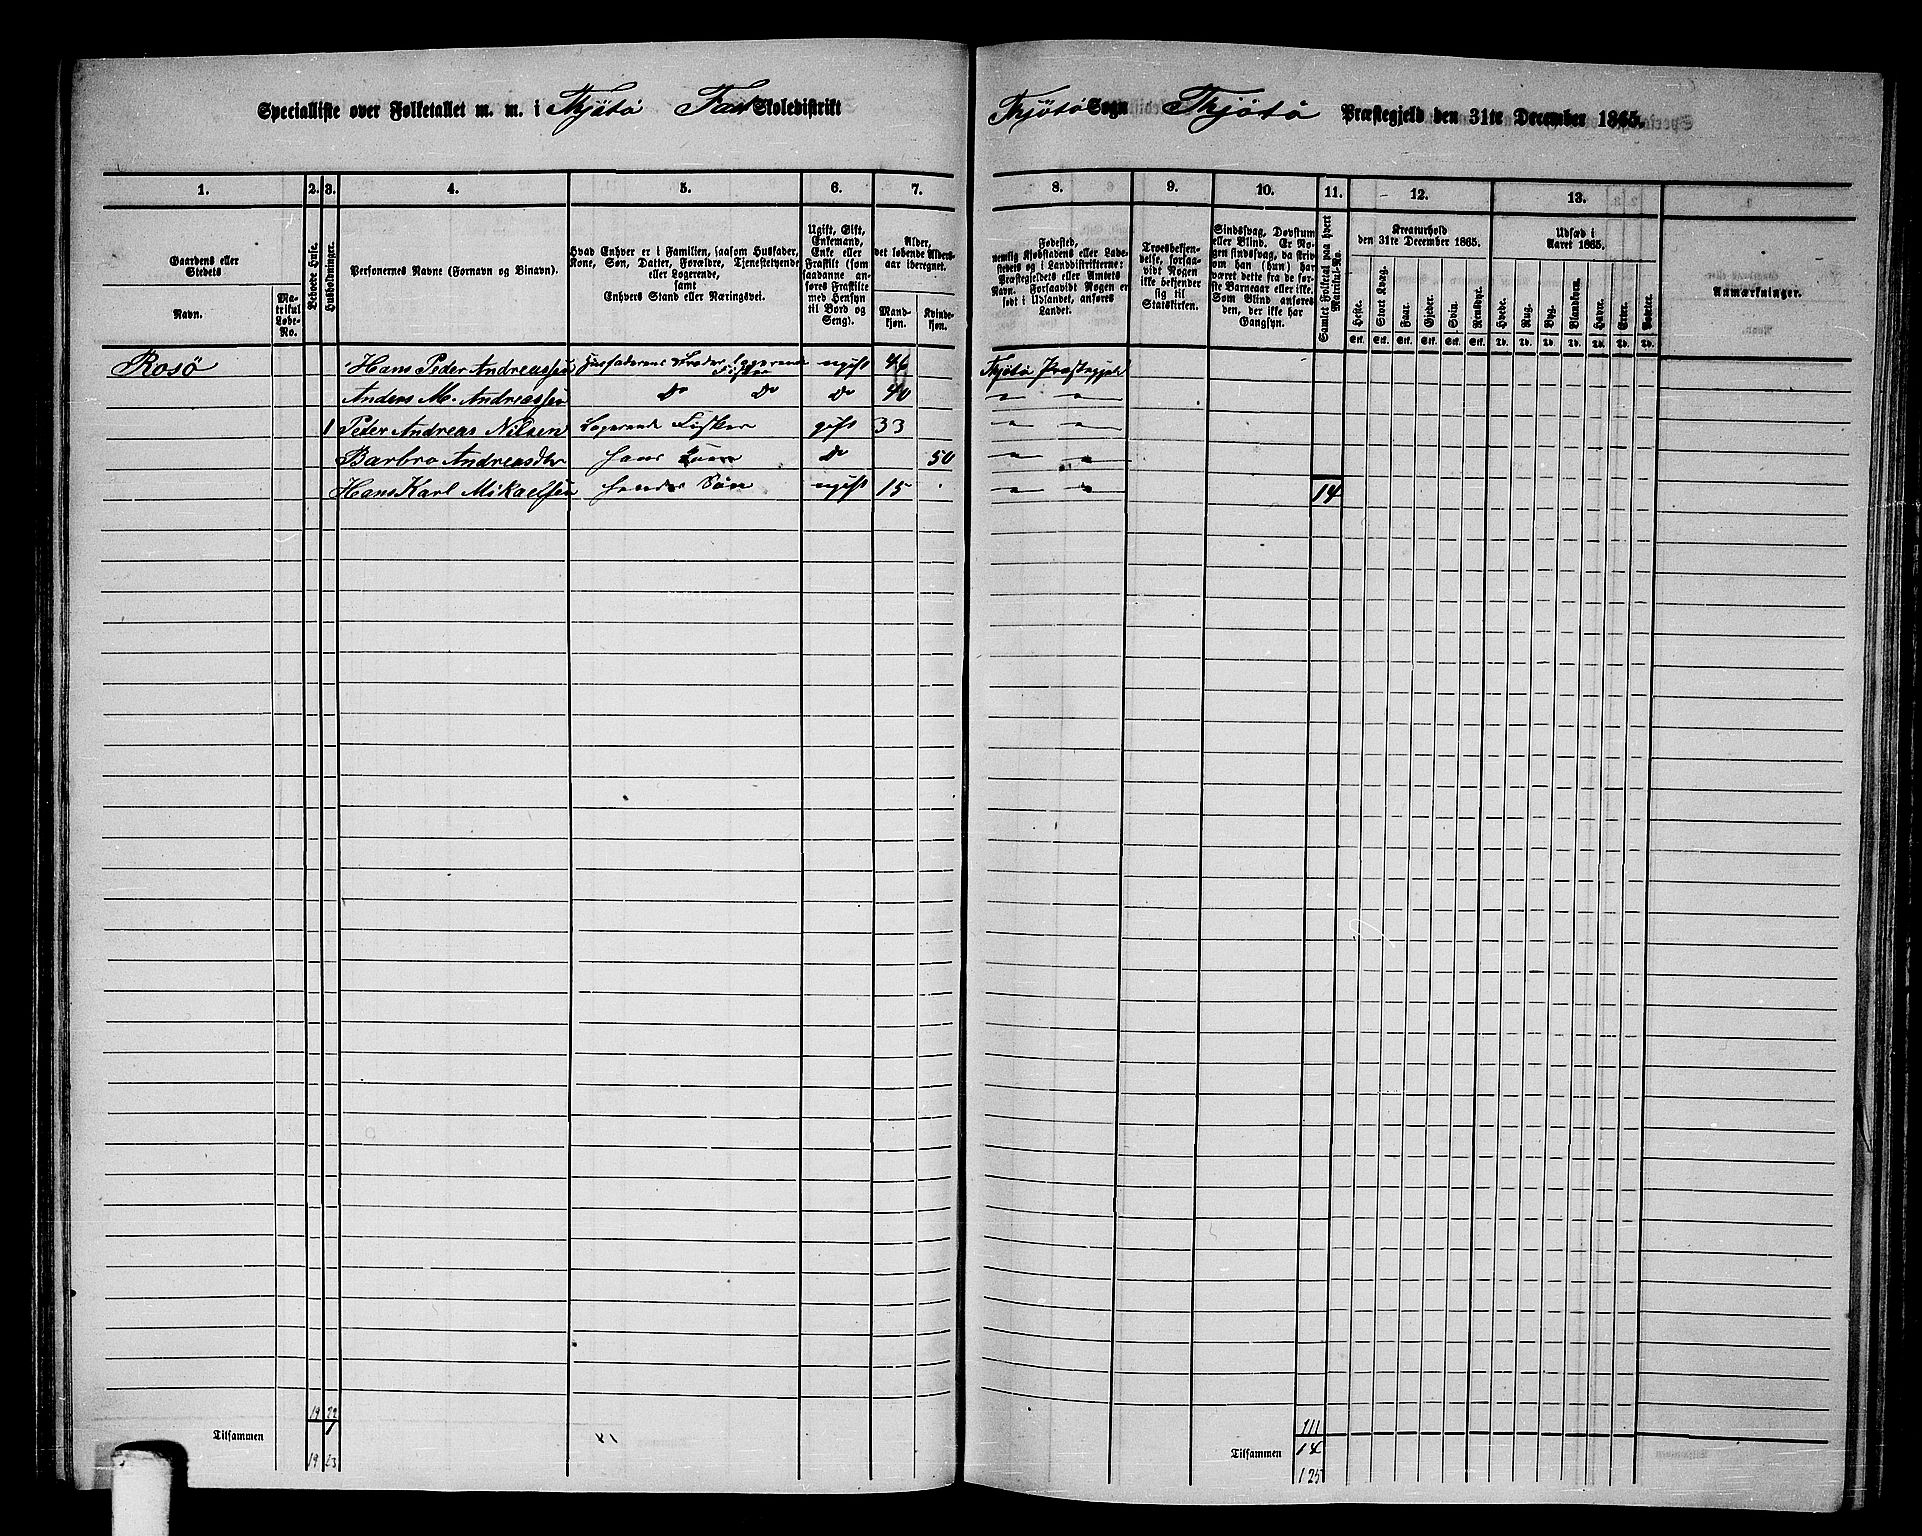 Specialliste over Folketallet m. m. i Thjötö Fast Skoledistrikt
Thjötö Sogn Thjötö Præstegjeld den 31te December 1865.
1. 2. 3. 4. 5. 6. 7. 8. 9. 10. 11. 12. 13.
Gaardens eller Stedets
Navn.
Matrikul Løbe-No.
Beboede Huse.
Husholdninger.
Personernes Navne (Fornavn og Binavn).
Hvad Enhver er i Familien, saasom Husfader,
Kone, Søn, Datter, Forældre, Tjenestetyende
eller Logerende,
samt
Enhvers Stand eller Næringsvei.
Ugift, Gift,
Enkemand,
Enke eller
Fraskilt (som
saadanne an-
føres Fraskilte
med Hensyn
til Bord og
Seng).
Alder,
det løbende Alders-
aar iberegnet.
Mand-
kjøn.
Kvinde-
kjøn.
Fødested,
nemlig Kjøbstadens eller Lade-
stedets og i Landdistrikterne:
Præstegjeldets eller Amtets
Navn. Forsaavidt Nogen er
født i Udlandet, anføres
Landet.
Troesbekjen-
delse, forsaa-
vidt Nogen
ikke bekjender
sig til
Statskirken.
Sindssvag, Døvstum
eller Blind. Er No-
gen sindssvag, da skriv
om han (hun) har
været dette fra de før-
ste Barneaar eller ikke.
Som Blind anføres
den, der ikke har
Gangsyn.
Samlet Folketal paa hvert Matrikul-No.
Kreaturhold
den 31te December 1865.
Heste. Stort Kvæg. Faar. Gjeder. Svin. Rensdyr.
Stk. Stk. Stk. Stk. Stk. Stk.
Udsæd i
Aaret 1865.
Hvede. Rug. Byg. Blandkorn. Havre. Erter. Poteter.
Td. Td. Td. Td. Td. Td. Td.
Anmærkninger.
Rosö Hans Peder Andreassen Husfaderens Broder Logerende Fisker ugift 46 Thjötö Præstegjeld
Anders M. Andreassen Do Do Do 40 " "
1 Peter Andreas Nilsen Logerende Fisker gift 33 " "
Barbro Andreasdtr hans Kone Do 50 " "
Hans Karl Mikaelsen hendes Søn ugift 15 " " 14
19 22 111
Tilsammen 1 Tilsammen 14
19 23 125